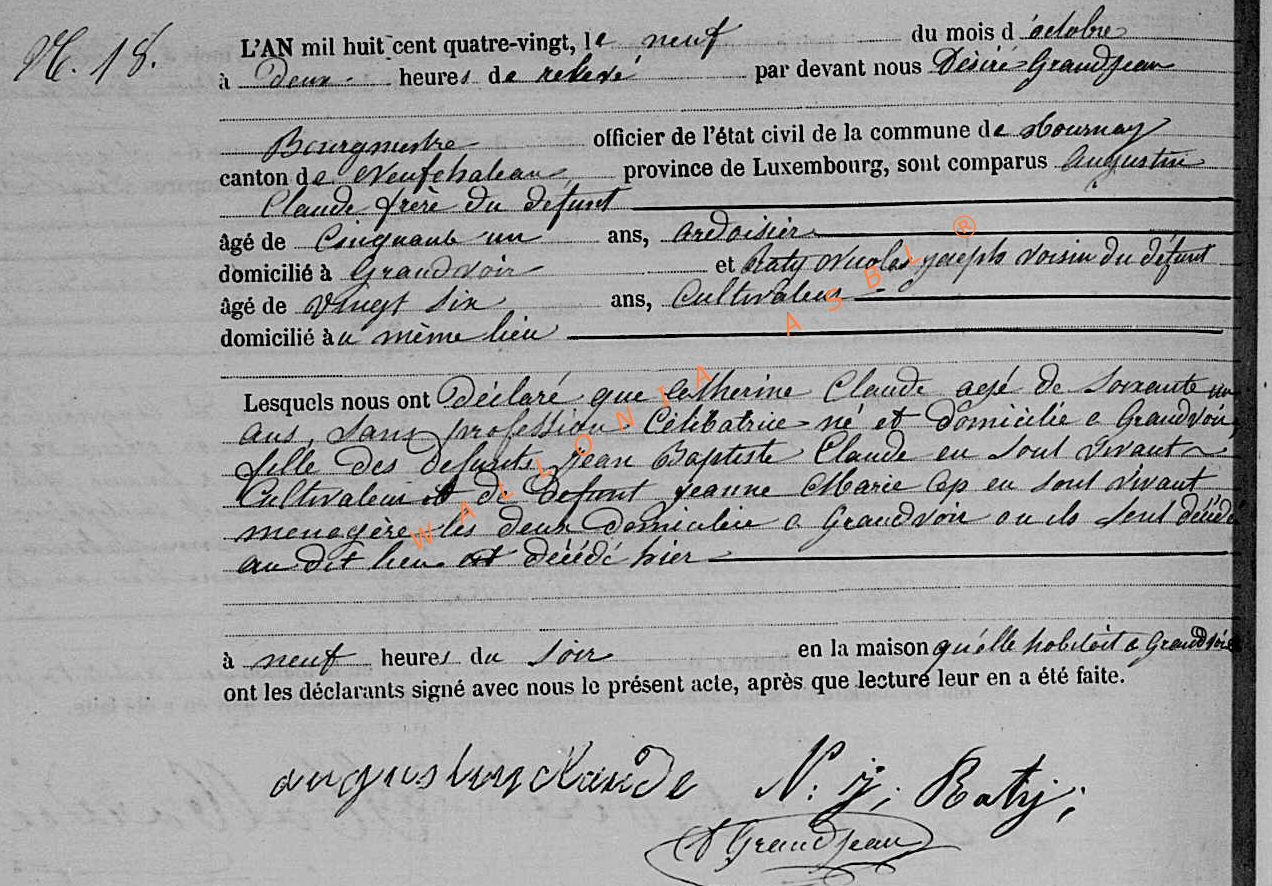 N. 18.
L'AN mil huit cent quatre-vingt, le neuf du mois d'octobre
à deux heures de relevé par devant nous Désiré Grandjean
Bourgmestre officier de l'état civil de la commune de Tournay
canton de Neufchateau province de Luxembourg, sont comparus Augustin
Claude frère du défunt
âgé de Cinquante un ans, ardoisier
domicilié à Grandvoir et Raty Nicolas joseph voisin du défunt
âgé de vingt six ans, Cultivateur
domicilié à u même lieu
Lesquels nous ont Déclaré que Catherine Claude agé de Soixante un
ans, Sans profession Célibatrice né et domicilié a Grandvoir,
fille des défunts jean Baptiste Claude en sont vivant
Cultivateur et de défunt jeanne Marie Cop en sont vivant
menagère les deux domicilié a Grandvoir ou ils sont décédé
au dit lieu est décédé hier
à neuf heures du Soir en la maison qu'élle habitoit a Grandvoir
ont les déclarants signé avec nous le présent acte, après que lecture leur en a été faite.
augustin Claude N: j; Raty;
D Grandjean
WALLONIA ASBL ®